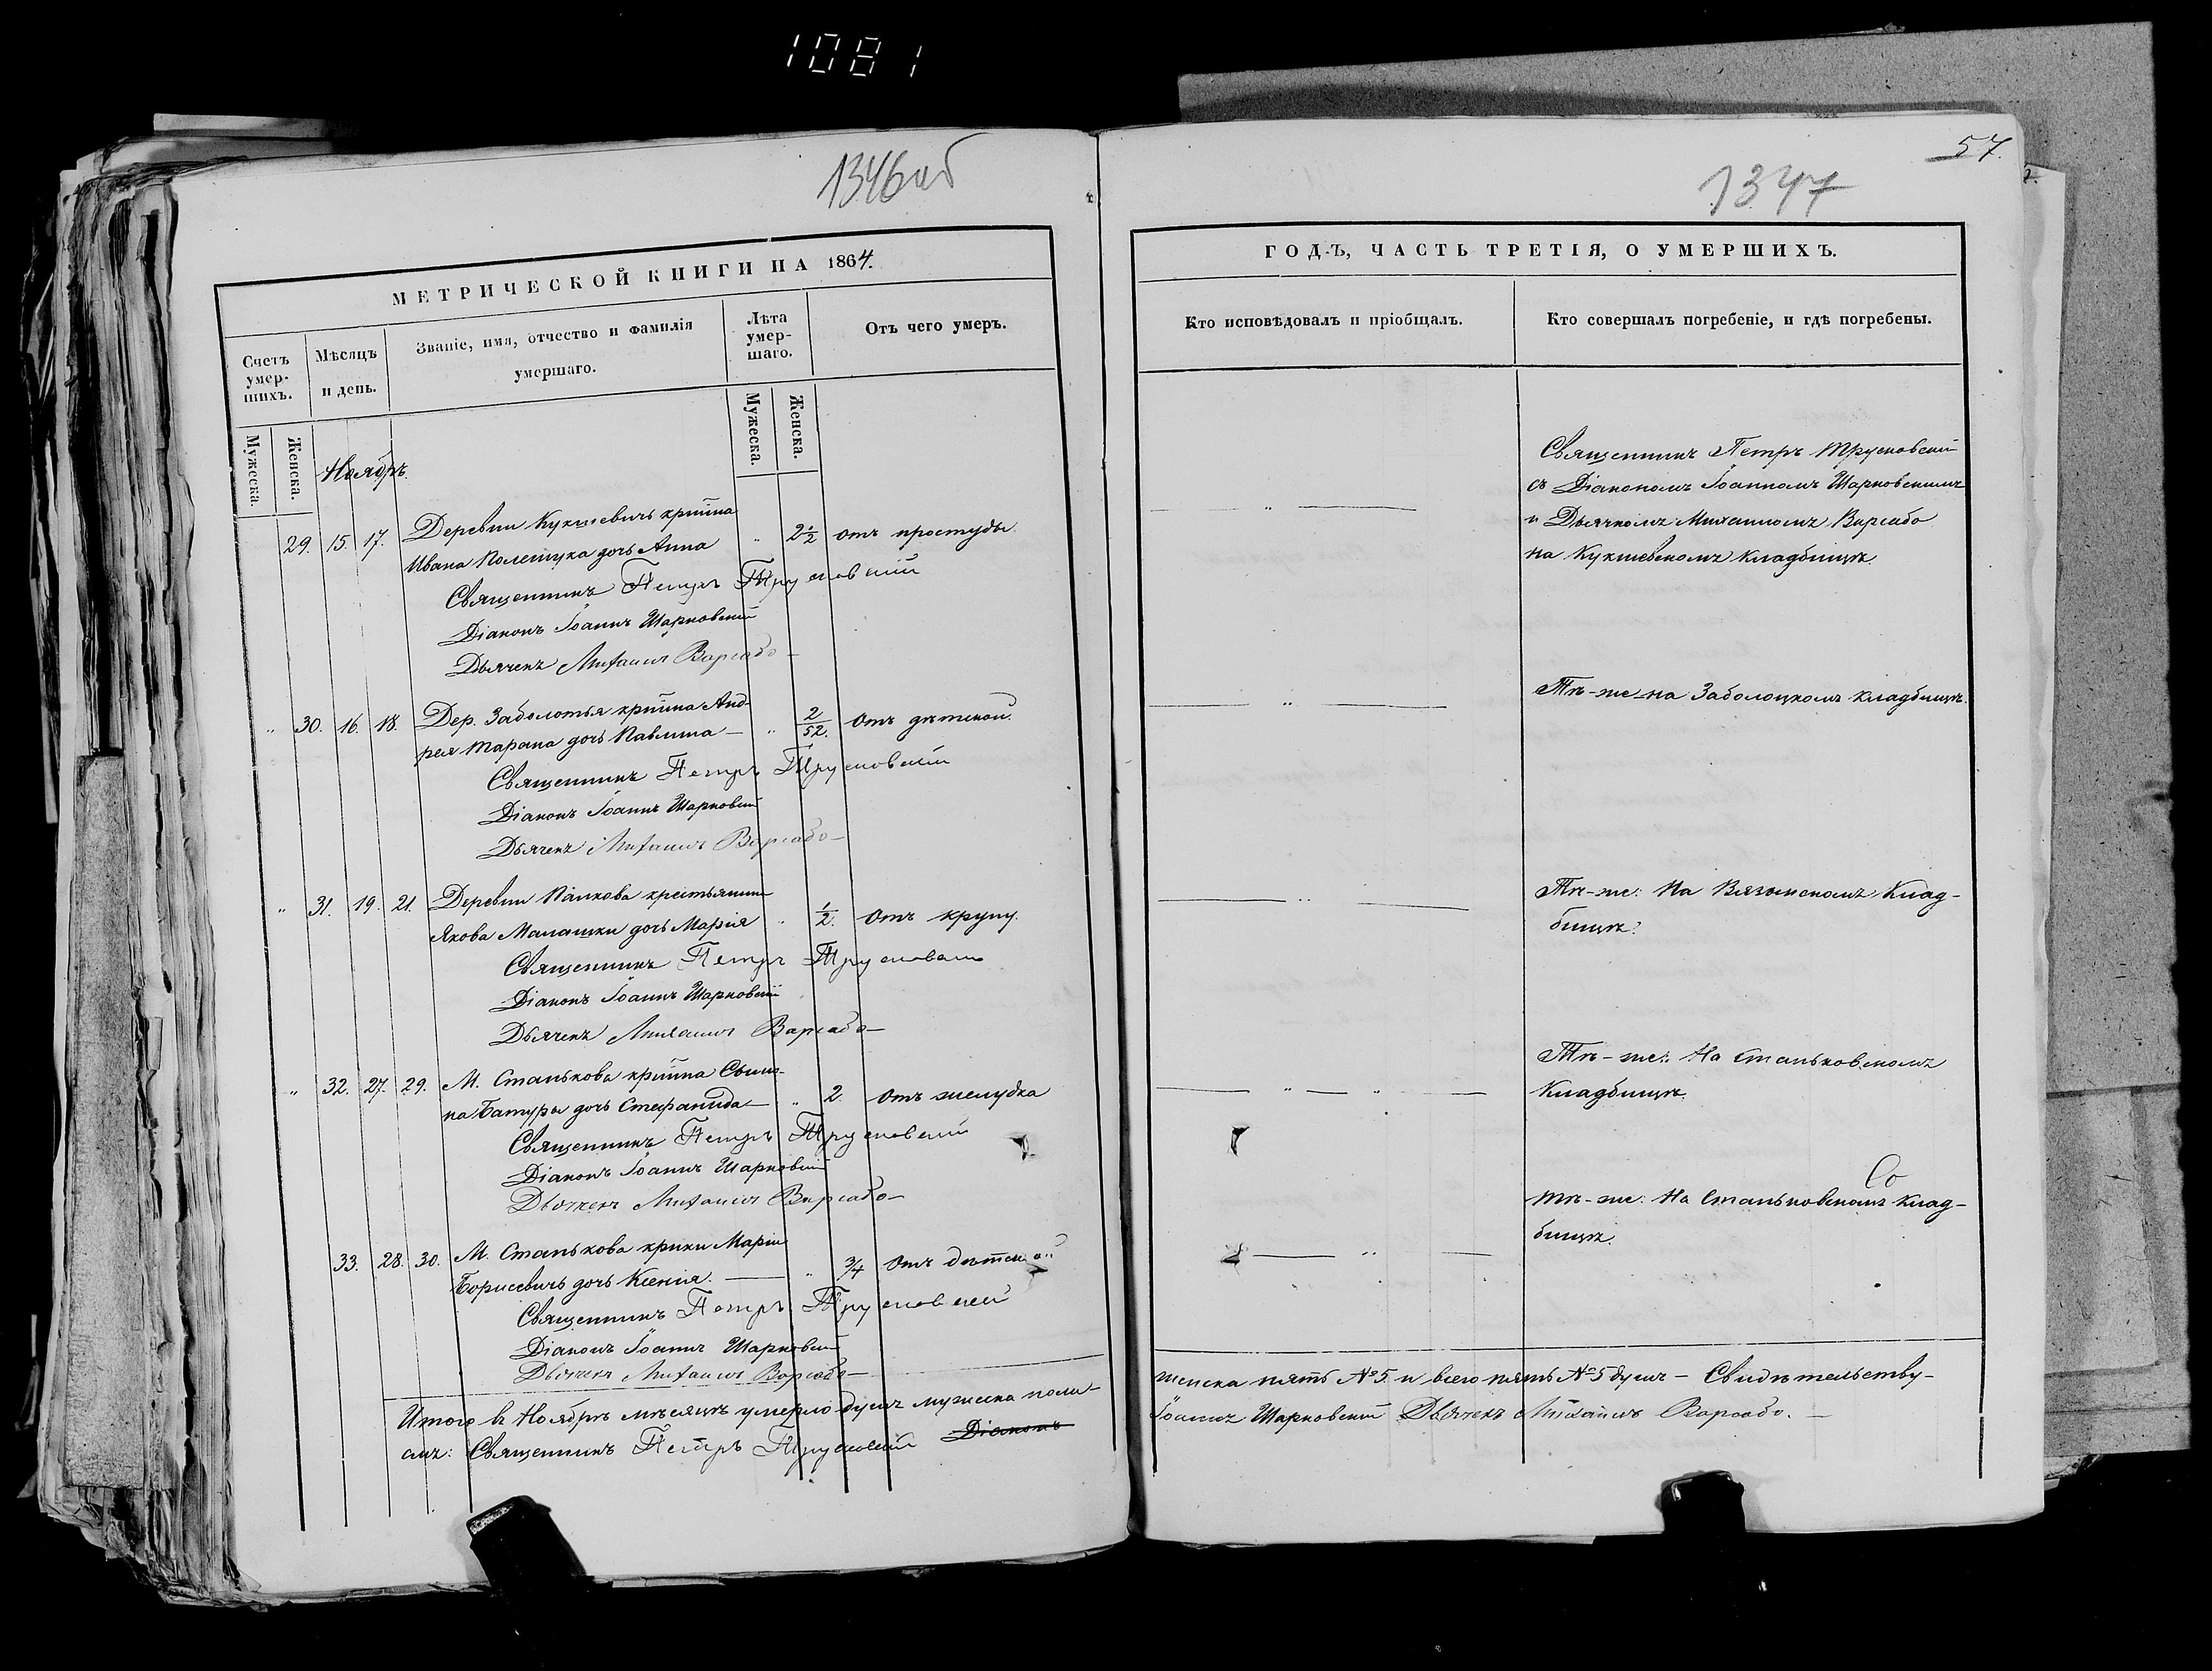 1081
1346 об
МЕТРИЧЕСКОЙ КНИГИ НА 1864.
Счетъ умер-шихъ.
Мѣсяцъ и день.
Званіе, имя, отчество и фамилія
умершаго.
Лѣта умер-шаго.
Отъ чего умеръ.
Мужеска.
Женска.
Мужеска.
Женска.
Ноябръ.
Деревни Кукшевичъ кр-ина
29. 15. 17. Ивана Полещука дочь Анна " 2½ отъ простуды.
Священникъ Петръ Трусковскій
Діаконъ Іоаннъ Шарковскій
Дьячекъ Михаилъ Варсабо
" 30. 16. 18. Дер. Заболотья кр-ина Анд-
рея Тарана дочь Павлина — " 2/52. отъ дѣтской.
Священникъ Петръ Трусковскій
Діаконъ Іоаннъ Шарковскій
Дьячекъ Михаилъ Варсабо
" 31. 19. 21. Деревни Панкова крестьянина
Якова Малашки дочь Марія " 1/2. отъ крупу.
Священникъ Петръ Трусковскій
Діаконъ Іоаннъ Шарковскій
Дьячекъ Михаилъ Варсабо
" 32. 27. 29. М. Станькова кр-ина
на Батуры дочь Стефанида — " 2. отъ желудка
Священникъ Петръ Трусковскій
Діаконъ Іоаннъ Шарковскій
Дьячекъ Михаилъ Варсабо
33. 28. 30. М. Станькова кр-ки Маріи
Борисевичъ дочь Ксенія. — " 3/4 отъ дѣтской
Священникъ Петръ Трусковскій
Діаконъ Іоаннъ Шарковскій
Дьячекъ Михаилъ Варсабо
Итого въ Ноябрѣ мѣсяцѣ умерло душъ мужеска пола —
емъ: Священникъ Петръ Трусковскій Діаконъ
57.
1347
ГОДЪ, ЧАСТЬ ТРЕТІЯ, О УМЕРШИХЪ.
Кто исповѣдовалъ и пріобщалъ.
Кто совершалъ погребеніе, и гдѣ погребены.
Священникъ Петръ Трусковскій
съ Діакономъ Іоанномъ Шарковскимъ
и Дьячкомъ Михаиломъ Варсабо
на Кукшевскомъ кладбищѣ.
Тѣ-же на Заболоцкомъ кладбищѣ.
Тѣ-же: На Вязынскомъ Клад-
бищѣ.
Тѣ-же: На Станьковскомъ
Кладбищѣ.
Тѣ-же: На Станьковскомъ клад-
бищѣ.
женска пять №5 и всего пять №5 душъ — Свидѣтельству-
Іоаннъ Шарковскій Дьячекъ Михаилъ Варсабо. —